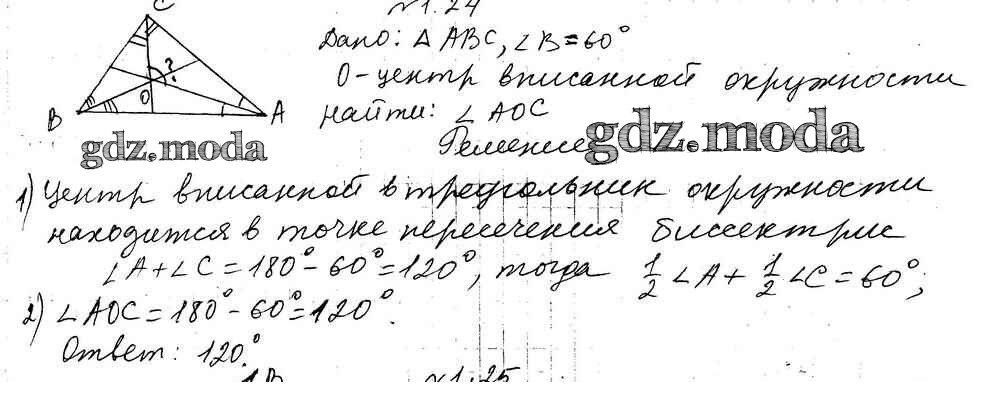 №1.24
C
Дано: △ ABC, ∠B=60°
?
О-центр вписанной окружности
O
B
A
найти: ∠AOC
gdz.moda
Решение
gdz.moda
1) Центр вписанной в треугольник окружности
находится в точке пересечения биссектрис
∠A+∠C=180°-60°=120°, тогда 1/2 ∠A+ 1/2 ∠C=60°;
2) ∠AOC=180°-60°=120°.
Ответ: 120°.
№1.25